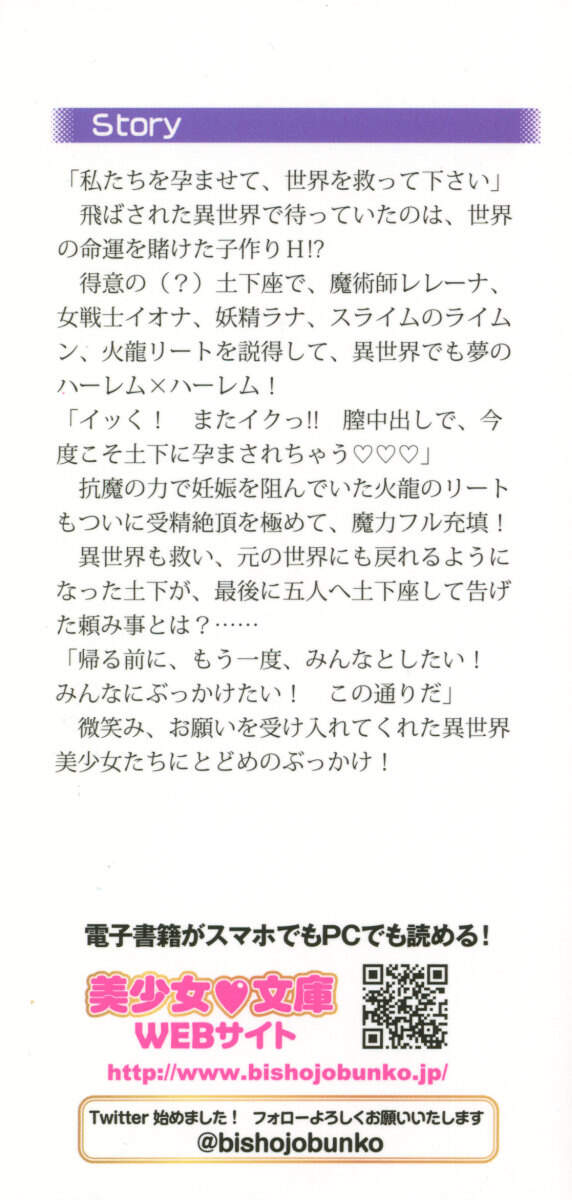 Story
「私たちを孕ませて、世界を救って下さい」
　飛ばされた異世界で待っていたのは、世界
の命運を賭けた子作りH!?
　得意の（？）土下座で、魔術師レレーナ、
女戦士イオナ、妖精ラナ、スライムのライム
ン、火龍リートを説得して、異世界でも夢の
ハーレム×ハーレム！
「イッく！　またイクっ!!　膣中出しで、今
度こそ土下に孕まされちゃう♡♡♡」
　抗魔の力で妊娠を阻んでいた火龍のリート
もついに受精絶頂を極めて、魔力フル充填！
　異世界も救い、元の世界にも戻れるように
なった土下が、最後に五人へ土下座して告げ
た頼み事とは？……
「帰る前に、もう一度、みんなとしたい！
みんなにぶっかけたい！　この通りだ」
　微笑み、お願いを受け入れてくれた異世界
美少女たちにとどめのぶっかけ！
電子書籍がスマホでもPCでも読める！
美少女♥文庫
WEBサイト
http://www.bishojobunko.jp/
Twitter 始めました！　フォローよろしくお願いいたします
@bishojobunko